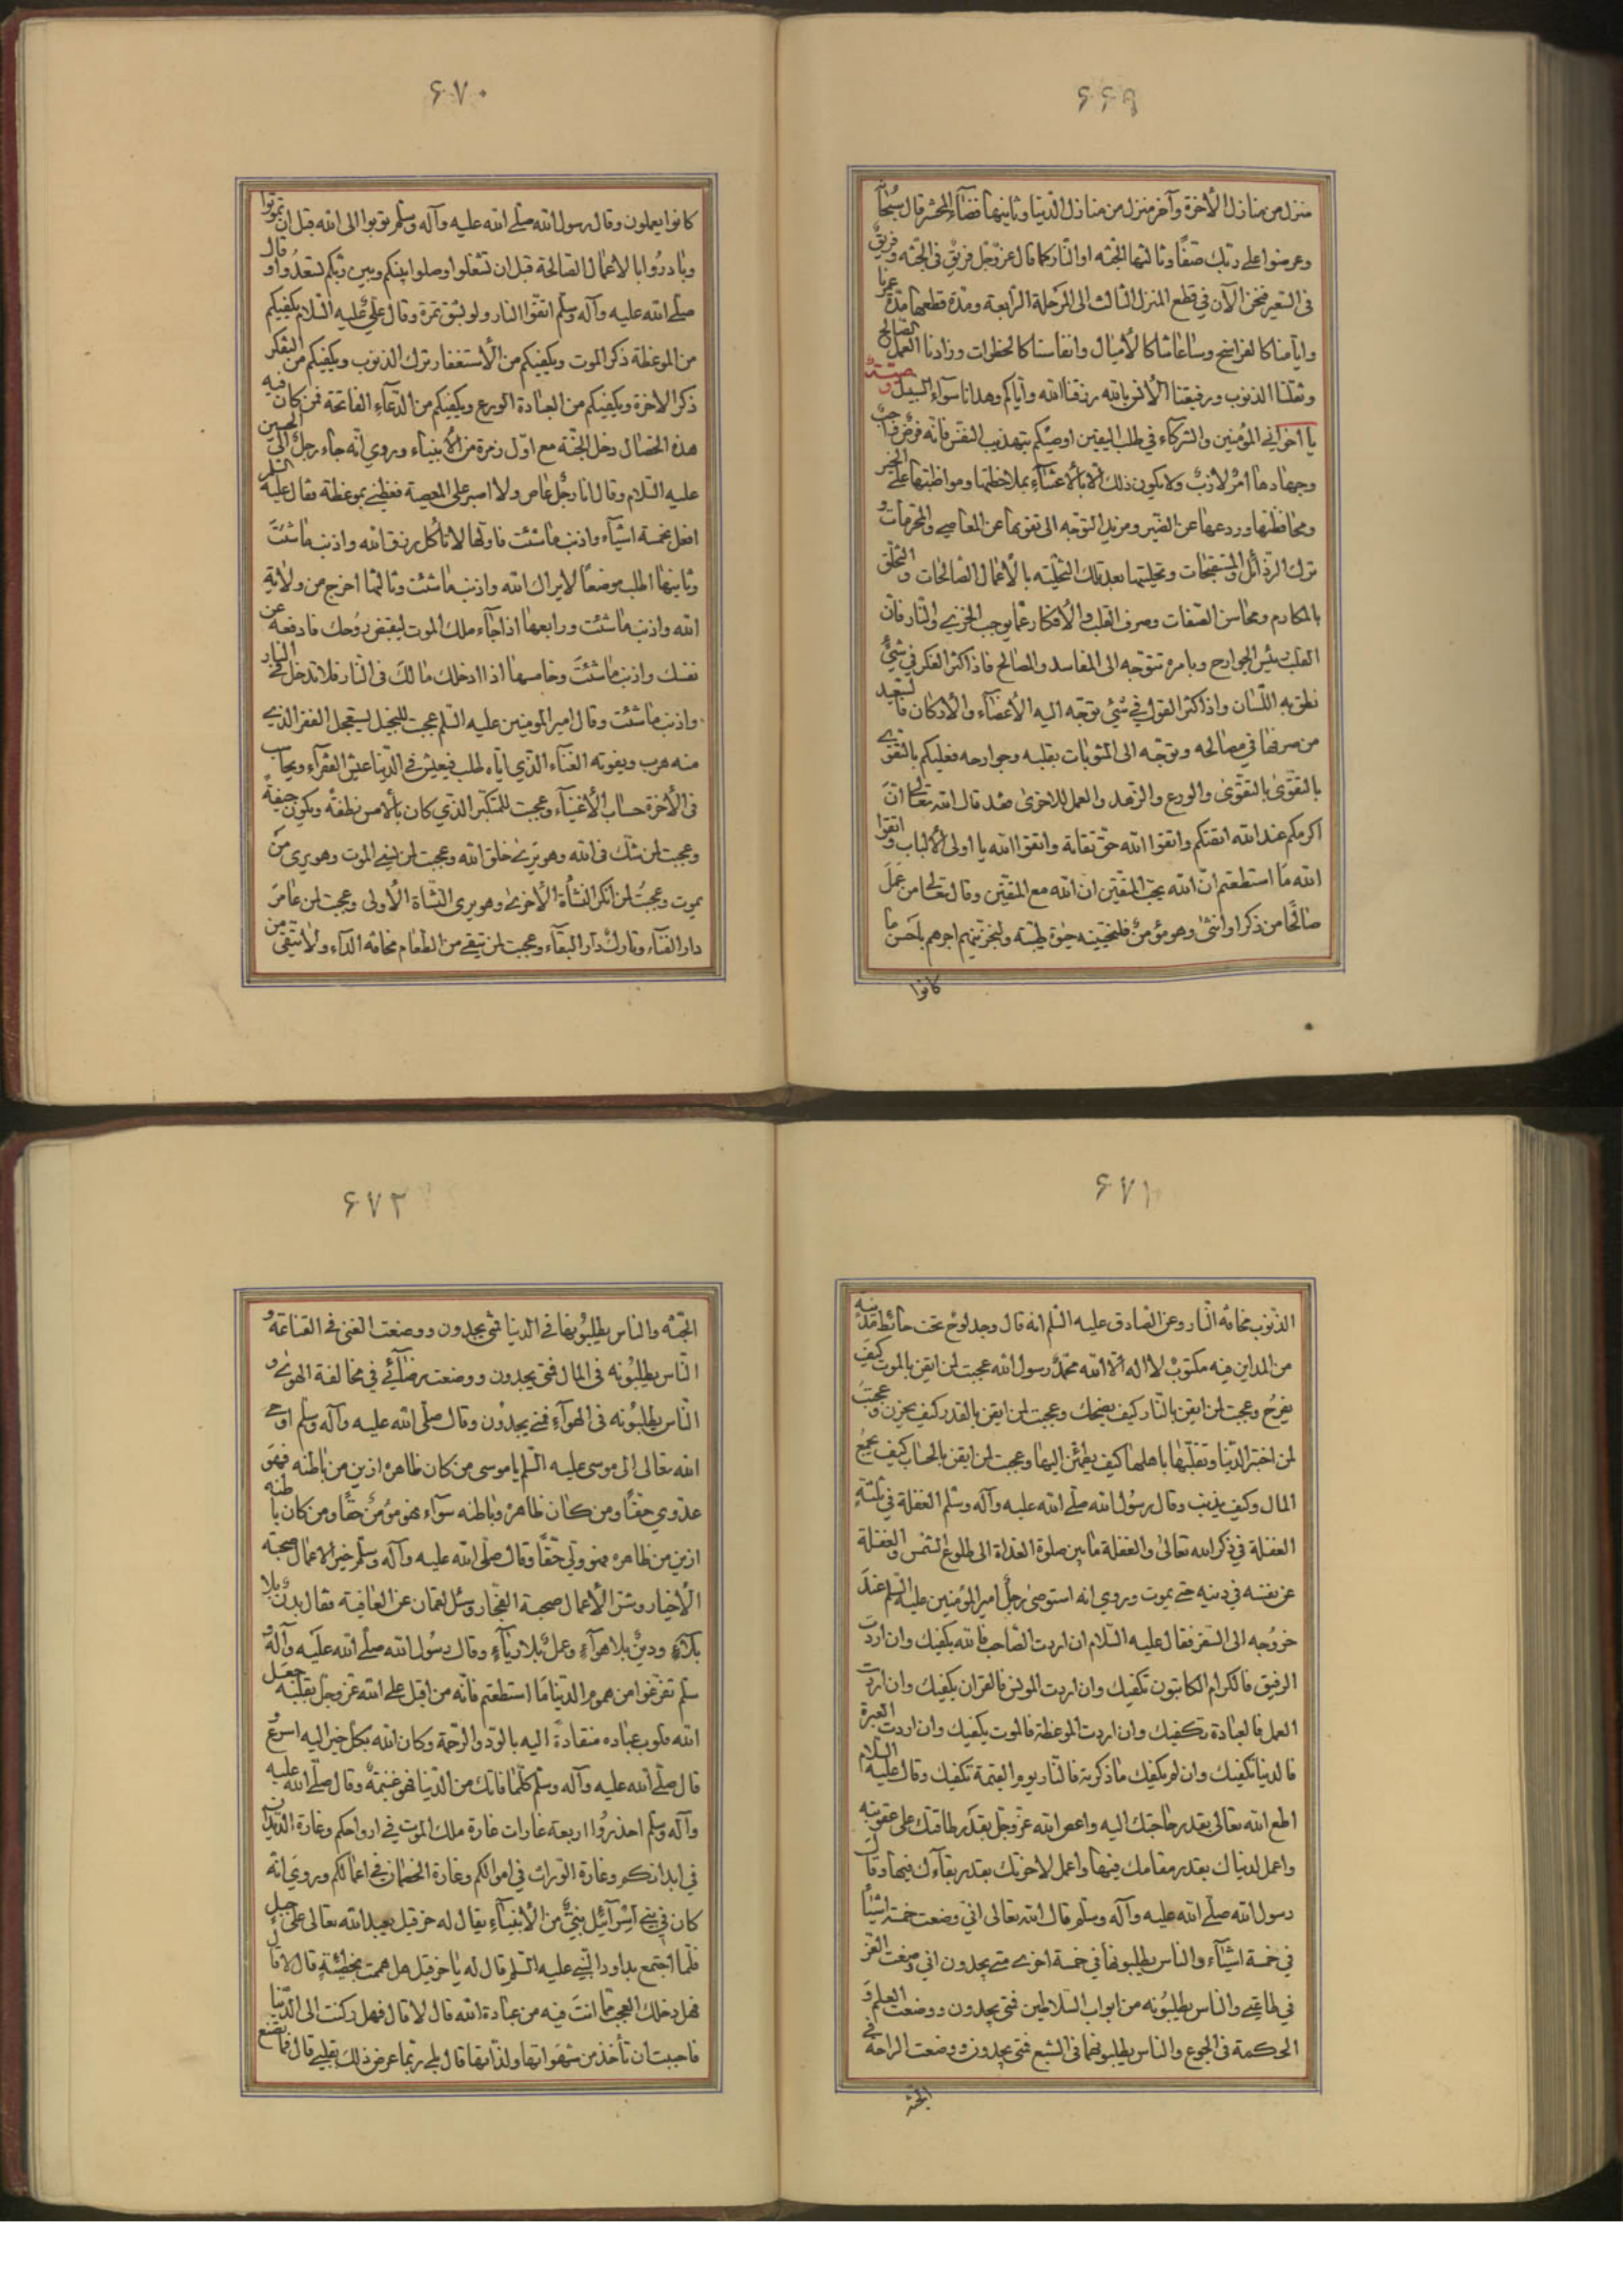 ۶۶۹
منزل من منازل الأخرة وآخر منزل من منازل الدنيا وثانيها فضاء المحشر قال سبحانه
وعرضوا على ربك صفًا وثالثها الجنّه او النّار كما قال عزّوجل فريق فى الجنّه وفريق
فى السّعير فنحن الآن في قطع المنزل الثالث الى المرحلة الرّابعة ومدّة قطعها مدّة عمرنا
وايّامنا كالفراسخ وساعاتنا كالأميال وانفاسنا كالخطوات وزادنا العمل الصّالح
وثقلنا الذنوب ورفيقنا الأنس بالله رزقنا الله وأياكم وهدانا سوآء السّبيل وصيّت
يا اخواني المؤمنين والشركاء في طلب اليقين اوصيكم بتهذيب النفس فانّه فرض واجب
وجهادها امر لازب ولا يكون ذلك الّا بالأعتنآء بملاحظتها ومواظبتها على الخير
ومحافظتها وردعها عن الضّير ومزيد التوجّه الى تقويمها عن المعاصي والمحرمات و
ترك الرّذائل والمستقبحات وتحليتها بعد تلك التّخليّة بالأعمال الصّالحات والتّخلّق
بالمكارم ومحاسن الصّفات وصرف القلب والأفكار عمّا يوجب الخزي والنّار فانّ
القلب رئيس الجوارح وبامره تتوجّه الى المفاسد والمصالح فاذا كثر الفكر في شيء
نطق به اللّسان واذا كثر القول في شيء توجّه اليه الأعضآء والأركان فالسّعيد
من صرفها في مصالحه وتوجّه الى المثوبات بقلبه وجوارحه فعليكم بالتّقوى
بالتّقوى بالتّقوى والورع والزّهد والعمل للاخرى فقد قال الله تعالى انّ
اكرمكم عند الله اتقيكم واتقوا الله حقّ تقاته واتقوا الله يا اولى الألباب واتقوا
الله ما استطعتم انّ الله يحبّ المتّقين ان الله مع المتّقين وقال تعالى من عمل
صالحًا من ذكر او انثى وهو مؤمن فلنحيينّه حيوة طيّبة ولنجزينّهم اجرهم باحسن ما
كانوا
۶۷۰
كانوا يعملون وقال رسول الله صلّى الله عليه وآله وسلّم توبوا الى الله قبل ان تموتوا
وبادروا بالاعمال الصّالحة قبل ان تشغلوا وصلوا بينكم وبين ربّكم لتسعدوا وقال
صلّى الله عليه وآله وسلّم اتقوا النار ولو بشق تمرة وقال علىّ عليه السّلام يكفيكم
من الموعظة ذكر الموت ويكفيكم من الأستغفار ترك الذنوب ويكفيكم من التّفكر
ذكر الاخرة ويكفيكم من العبادة الورع ويكفيكم من الدّعآء الفاتحة فمن كان فيه
هذه الخصال دخل الجنّة مع اوّل زمرة من الأنبياء وروي انّه جاء رجل الى الحسين
عليه السّلام وقال انا رجل عاص ولا اصبر على المعصية فعظني بموعظة فقال عليه السّلم
افعل خمسة اشيآء واذنب ما شئت فاولها لا تأكل رزق الله واذنب ما شئت
وثانيها اطلب موضعًا لا يراك الله واذنب ما شئت وثالثها اخرج من ولاية
الله واذنب ما شئت ورابعها اذا جآء ملك الموت ليقبض روحك فادفعه عن
نفسك واذنب ما شئت وخامسها اذا ادخلك مالك فى النّار فلا تدخل في النار
واذنب ما شئت وقال امير المومنين عليه السّلم عجبت للبخيل يستعجل الفقر الذي
منه هرب ويفوته الغنآء الذّي ايّاه طلب فيعيش فى الدّنيا عيش الفقرآء ويحاسب
فى الأخرة حساب الأغنيآء وعجبت للمتكبّر الذّي كان بألامس نطفة ويكون جيفةً
وعجبت لمن شكّ فى الله وهو يرى خلق الله وعجبت لمن نسى الموت وهو يرى من
يموت وعجبت لمن انكر النّشأة الأخرى وهو يرى النّشأة الأولى وعجبت لمن عامر
دار الفنآء وتارك دار البقآء وعجبت لمن يتقى من الطّعام مخافه الدآء ولا يتقى من
۶۷۱
الذّنوب مخافه النّار وعن الصّادق عليه السّلم انه قال وجد لوح تحت حائط مدينه
من المداين فيه مكتوب لا اله الّا الله محمّد رسول الله عجبت لمن ايقن بالموت كيف
يفرح وعجبت لمن ايقن بالنّار كيف يضحك وعجبت لمن ايقن بالقدر كيف يحزن وعجبت
لمن اختبر الدّنيا وتقلّبها باهلها كيف يطمئن اليها وعجبت لمن ايقن بالحساب كيف يجمع
المال وكيف يذنب وقال رسول الله صلّى الله عليه وآله وسلّم الغفلة في ثلثة
الغفلة في ذكر الله تعالى والغفلة ما بين صلوة الغداة الى طلوع الشّمس والغفلة
عن نفسه في دينه حتّى يموت وروي انه استوصى رجل امير المؤمنين عليه السّلم عند
خروجه الى السّفر فقال عليه السّلام ان اردت الصّاحب فالله يكفيك وان اردت
الرفيق فالكرام الكاتبون تكفيك وان اردت المونس فالقران يكفيك وان اردت
العمل فالعبادة تكفيك وان اردت الموعظة فالموت يكفيك وان اردت العبرة
فالدنيا تكفيك وان لم يكفيك ما ذكرته فالنّار يوم القيمة تكفيك وقال عليه السّلام
اطع الله تعالى بقدر حاجتك اليه واعص الله عزّوجلّ بقدر طاقتك على عقوبته
واعمل لدنياك بقدر مقامك فيها واعمل لاخرتك بقدر بقآءك فيها وقال
رسول الله صلّى الله عليه وآله وسلّم قال الله تعالى انّي وضعت خمسة اشيآء
في خمسة اشيآء والناس يطلبونها في خمسة اخرى متى يجدون انى وضعت العزّ
في طاعتي والناس يطلبونه من ابواب السّلاطين فمتى يجدون ووضعت العلم و
الحكمة فى الجوع والناس يطلبونهما فى الشبع فمتى يجدون ووضعت الراحة في
الجنّه
۶۷۲
الجنّه والناس يطلبونها في الدنيا متى يجدون ووضعت الغنى فى القناعة و
النّاس يطلبونه فى المال فمتى يجدون ووضعت رضآئي في مخالفة الهوى و
النّاس يطلبونه فى الهوآء فمتى يجدون وقال صلّى الله عليه وآله وسلّم اوحى
الله تعالى الى موسى عليه السّلم يا موسى من كان ظاهره ازين من باطنه فهو
عدّوي حقًّا ومن كان ظاهره وباطنه سوآء فهو مؤمن حقًّا ومن كان باطنه
ازين من ظاهره فهو وليّ حقًّا وقال صلّى الله عليه وآله وسلّم خير الاعمال صحبة
الأخيار وشرّ الأعمال صحبة الفجّار وسئل لقمان عن العافية فقال بدن بلا
بلآء ودين بلا هوآء وعمل بلا ريآء وقال رسول الله صلّى الله عليه وآله و
سلّم تفرّغوا من هموم الدنيا ما استطعتم فانّه من اقبل على الله عزّوجلّ بقلبه جعل
الله قلوب عباده منقادة اليه بالودّ والرّحمة وكان الله بكلّ خير اليه اسرع و
قال صلّى الله عليه وآله وسلّم كلّما فاتك من الدّنيا فهو غنيمة وقال صلّى الله عليه
وآله وسلّم احذروا اربعة غارات غارة ملك الموت في ارواحكم وغارة الدّيدان
في ابدانكم وغارة الورّاث في اموالكم وغارة الخصمان في اعمالكم وروي انّه
كان في بني اسرآئيل نبيّ من الأنبيآء يقال له حزقيل يعبد الله تعالى على جبل
فلمّا اجتمع بداود النّبي عليه السّلم قال له يا حزقيل هل هممت بخطيئة قال لا قال
فهل دخلك العجب ممّا انت فيه من عبادة الله قال لا قال فهل ركنت الى الدّنيا
فاحببت ان تأخذ من شهواتها ولذاتها قال بلى ربما عرض ذلك بقلبي قال فما تصنع